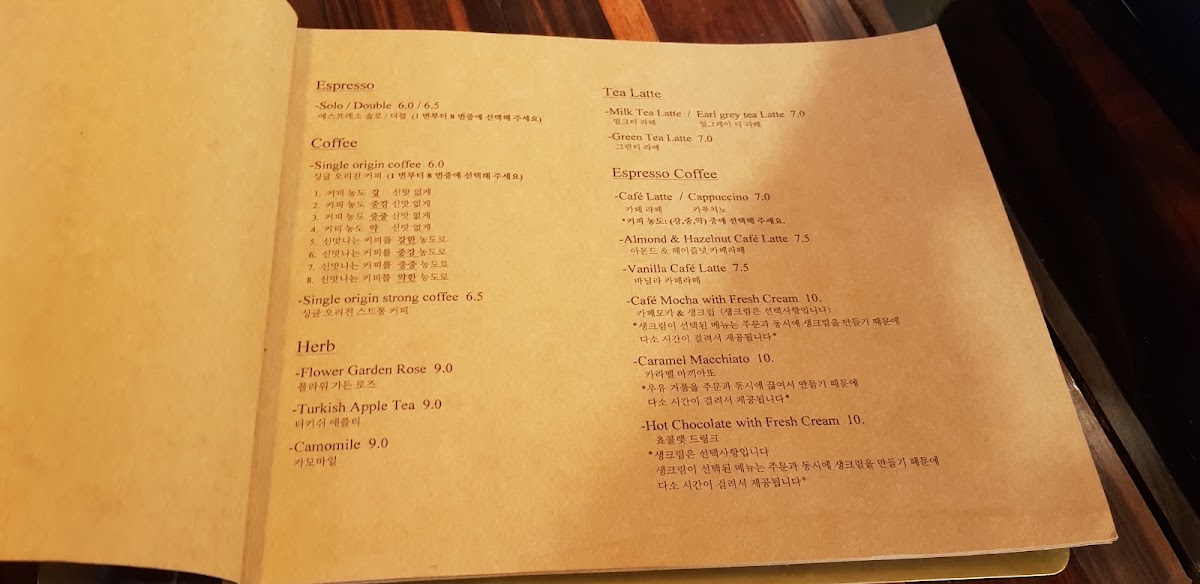 Espresso
-Solo / Double 6.0 / 6.5
에스프레소 솔로 / 더블 (1 번부터 8 번중에 선택해 주세요)
Coffee
-Single origin coffee 6.0
싱글 오리진 커피 (1 번부터 8 번중에 선택해 주세요)
1. 커피 농도 강 신맛 없게
2. 커피 농도 중강 신맛 없게
3. 커피 농도 중중 신맛 없게
4. 커피 농도 약 신맛 없게
5. 신맛나는 커피를 강한 농도로
6. 신맛나는 커피를 중강 농도로
7. 신맛나는 커피를 중중 농도로
8. 신맛나는 커피를 약한 농도로
-Single origin strong coffee 6.5
싱글 오리진 스트롱 커피
Herb
-Flower Garden Rose 9.0
플라워 가든 로즈
-Turkish Apple Tea 9.0
터키쉬 애플티
-Camomile 9.0
카모마일
Tea Latte
-Milk Tea Latte / Earl grey tea Latte 7.0
밀크티 라떼 얼그레이 티 라떼
-Green Tea Latte 7.0
그린티 라떼
Espresso Coffee
-Café Latte / Cappuccino 7.0
카페 라떼 카푸치노
*커피 농도: (강,중,약) 중에 선택해 주세요.
-Almond & Hazelnut Café Latte 7.5
아몬드 & 헤이즐넛 카페라떼
-Vanilla Café Latte 7.5
바닐라 카페라떼
-Café Mocha with Fresh Cream 10.
카페모카 & 생크림 (생크림은 선택사항입니다)
*생크림이 선택된 메뉴는 주문과 동시에 생크림을 만들기 때문에
다소 시간이 걸려서 제공됩니다*
-Caramel Macchiato 10.
카라멜 마끼아또
*우유 거품을 주문과 동시에 끊여서 만들기 때문에
다소 시간이 걸려서 제공됩니다*
-Hot Chocolate with Fresh Cream 10.
쵸콜렛 드링크
*생크림은 선택사항입니다
생크림이 선택된 메뉴는 주문과 동시에 생크림을 만들기 때문에
다소 시간이 걸려서 제공됩니다*